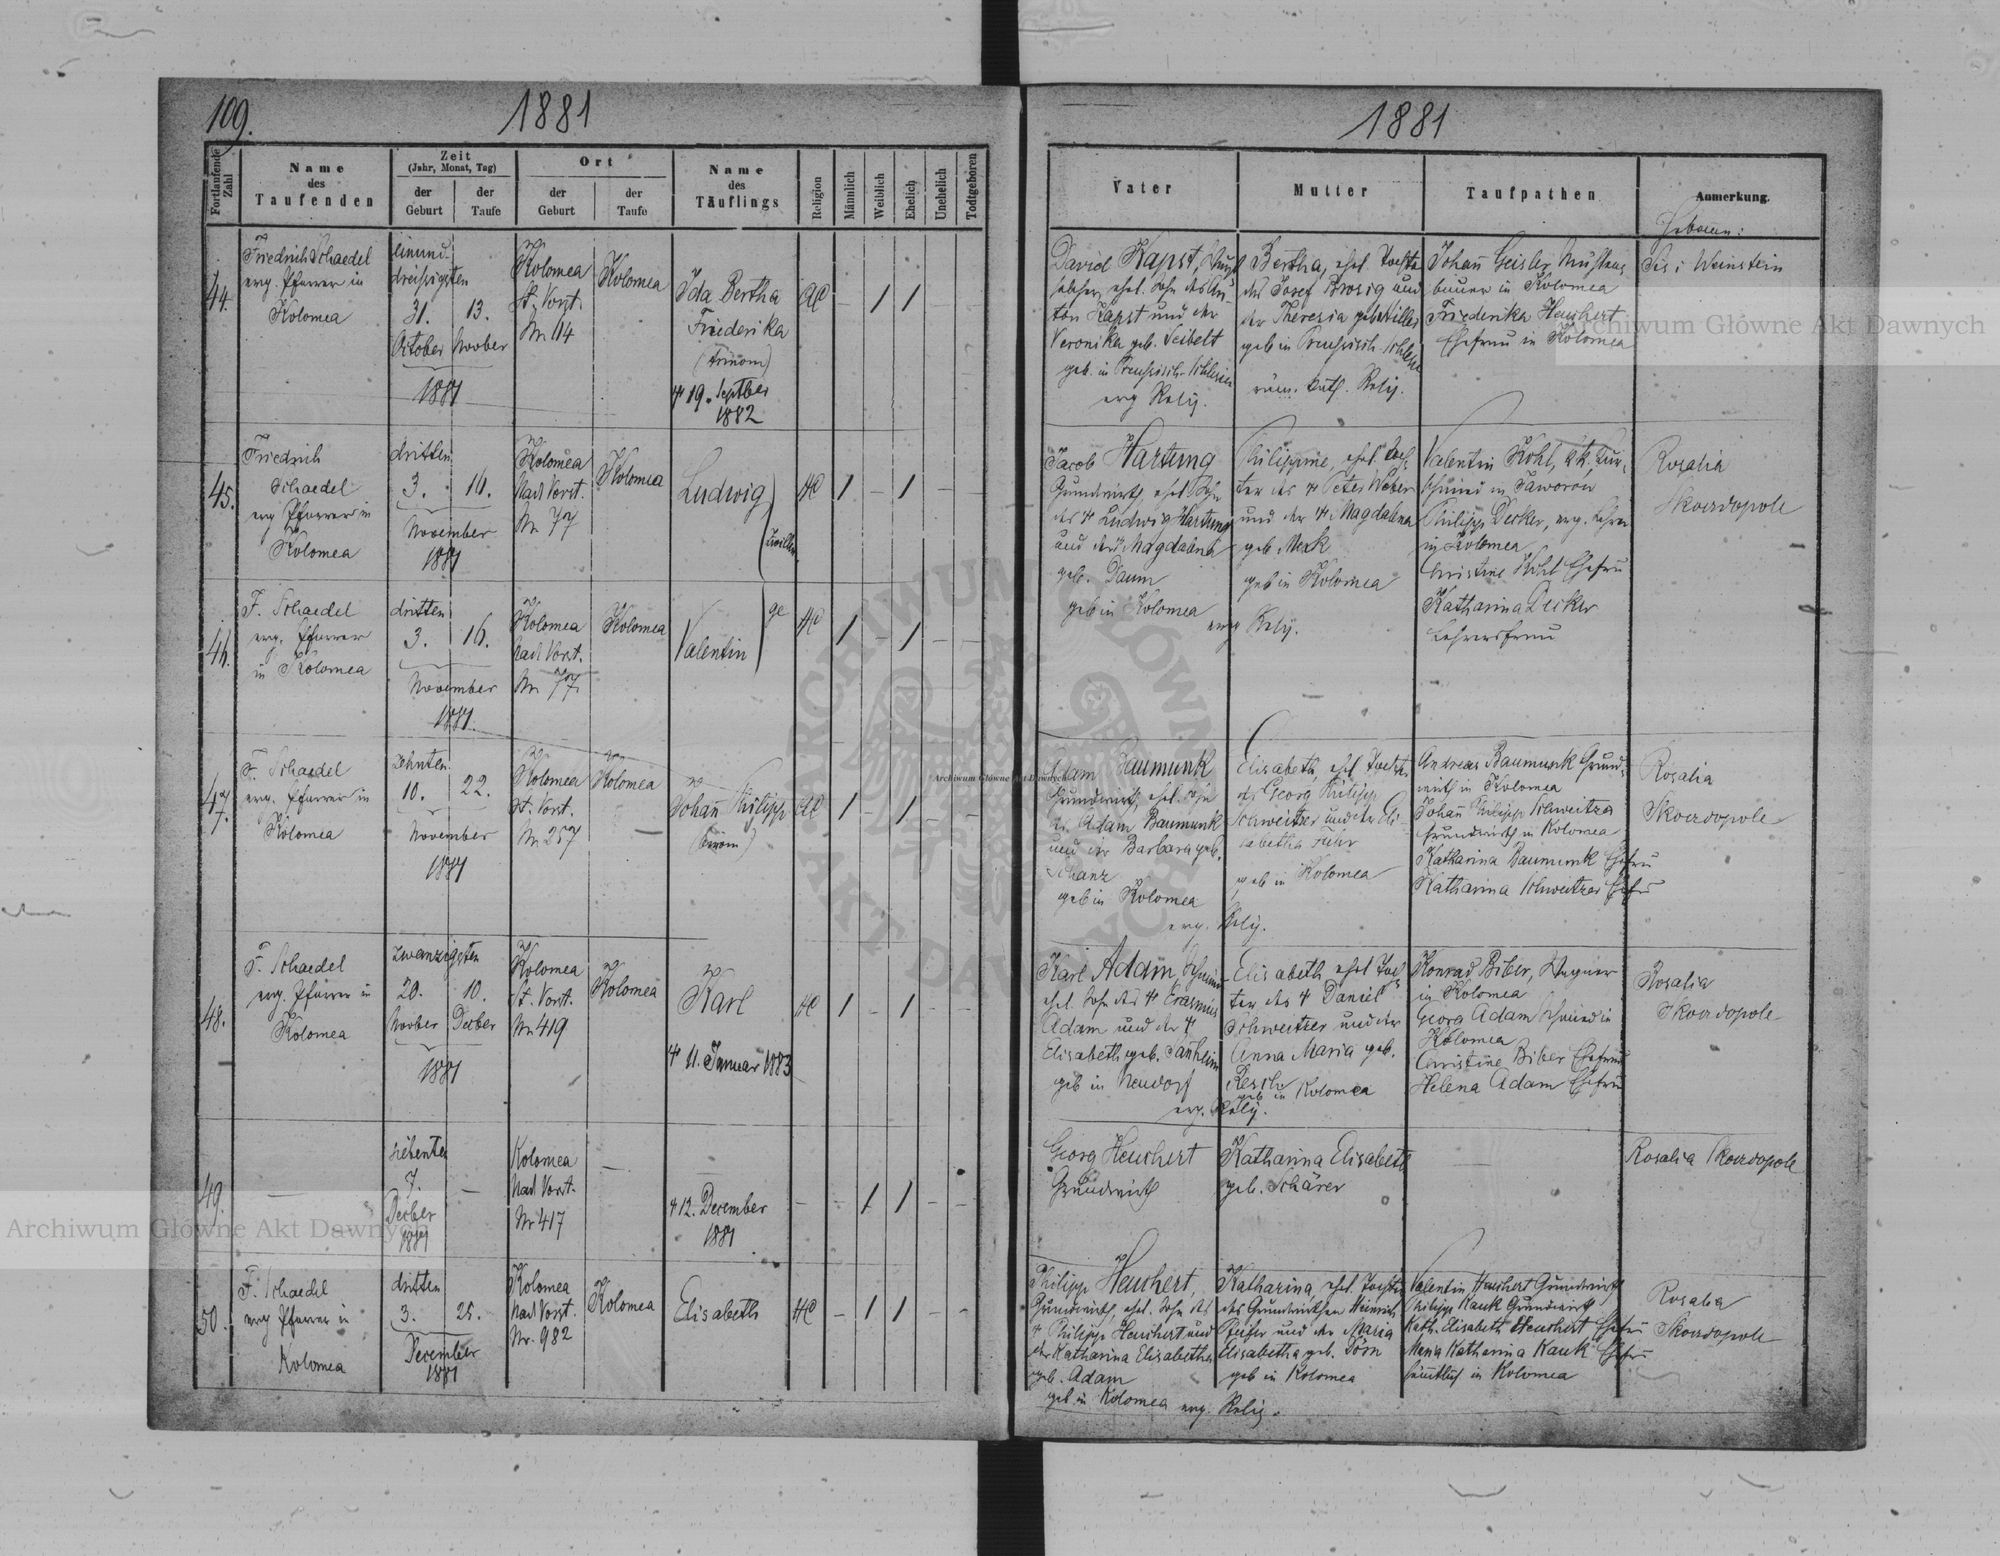 109.
1881
Fortlaufende Zahl
Name
des
Taufenden
Zeit
(Jahr, Monat, Tag)
der
Geburt
der
Taufe
Ort
der
Geburt
der
Taufe
Name
des
Täuflings
Religion
Männlich
Weiblich
Ehelich
Unehelich
Todtgeboren
44.
Friedrich Schaedel
evg. Pfarrer in
Kolomea
einund
dreißigsten
31.
13.
October
Novber
1881
Kolomea
St. Vorst.
Nr 114
Kolomea
Ida Bertha
Friederika
19. Septber
1882
AC
45.
Friedrich
Schaedel
evg Pfarrer in
Kolomea
dritten
3.
16.
November
1881
Kolomea
Nad Vorst.
Nr 77
Kolomea
Ludwig
Zwillin
AC
46.
F. Schaedel
evg. Pfarrer
in Kolomea
dritten
3.
16.
November
1881.
Kolomea
Nad Vorst.
Nr 77.
Kolomea
Valentin
ge
AC
47.
F. Schaedel
evg. Pfarrer in
Kolomea
zehnten
10.
22.
November
1881
Kolomea
St. Vorst.
Nr 257
Kolomea
Johañ Philipp
AC
48.
F. Schaedel
evg. Pfarrer in
Kolomea
zwanzigsten
20.
10.
Novber
Decber
1881
Kolomea
St. Vorst.
Nr 419
Kolomea
Karl
11. Januar 1883
AC
49.
siebenten
7.
Decber
1881
Kolomea
Nad Vorst.
Nr 417
12. December
1881
50.
F. Schaedel
evg Pfarrer in
Kolomea
dritten
3.
25.
December
1881
Kolomea
Nad Vorst.
Nr. 982
Kolomea
Elisabeth
AC
1881
Vater
Mutter
Taufpathen
Anmerkung.
Hebamme:
David Kapst,
ehel. Sohn des An-
ton Kapst und der
Veronika geb. Seibelt
geb. in Preussisch-Schlesien
evg Relig.
Bertha, ehel. Tochter
des Josef Brosig und
der Theresia geb.
geb in Preussisch-Schlesien
röm. kath. Relig.
Johañ Geisler,
bauer in Kolomea
Friederika Heuchert
Ehefrau in Kolomea
Weinstein
Jacob Hartung
Grundwirth, ehel. Sohn
des Ludwig Hartung
und der Magdalena
geb. Daum
geb in Kolomea
evg Relig.
Philippine, ehel. Toch-
ter des Peter Weber
und der Magdalena
geb. Merk
geb in Kolomea
Valentin Kohl,
schmied in Jaworow
Philipp Decker, evg. Lehrer
in Kolomea
Christine Kohl Ehefrau
Katharina Decker
Lehrersfrau
Rosalia
Skowdopole
Adam Baumunk
Grundwirth, ehel. Sohn
des Adam Baumunk
und der Barbara geb.
Schanz
geb in Kolomea
evg. Relig.
Elisabeth, ehel. Tochter
des Georg Philipp
Schweitzer und der Eli-
sabetha Fuhr
geb in Kolomea
Andreas Baumunk Grund-
wirth in Kolomea
Johañ Philipp Schweitzer
Grundwirth in Kolomea
Katharina Baumunk Ehefrau
Katharina Schweitzer Ehefrau
Rosalia
Skowdopole
Karl Adam,
ehel. Sohn des Erasmus
Adam und der
Elisabeth geb. Sauheim
geb in Neudorf
evg. Relig.
Elisabeth, ehel. Toch-
ter des Daniel
Schweitzer und der
Anna Maria geb.
Resch
geb in Kolomea
Konrad Biber, Wagner
in Kolomea
Georg Adam Schmied in
Kolomea
Christine Biber Ehefrau
Helena Adam Ehefrau
Rosalia
Skowdopole
Georg Heuchert
Grundwirth
Katharina Elisabeth
geb. Schärer
Rosalia Skowdopole
Philipp Heuchert,
Grundwirth, ehel. Sohn des
Philipp Heuchert und
der Katharina Elisabetha
geb. Adam
geb in Kolomea evg. Relig.
Katharina, ehel. Tochter
des Grundwirthen Heinrich
Pfeifer und der Maria
Elisabetha geb. Dorn
geb in Kolomea
Valentin Heuchert Grundwirth
Philipp Kauk Grundwirth
Kath. Elisabeth Heuchert Ehefrau
Maria Katharina Kauk Ehefrau
sämtlich in Kolomea
Rosalia
Skowdopole
Archiwum Główne Akt Dawnych
Archiwum Główne Akt Dawnych
Archiwum Główne Akt Dawnych
ARCHIWUM GŁÓWNE
AKT DAWNYCH